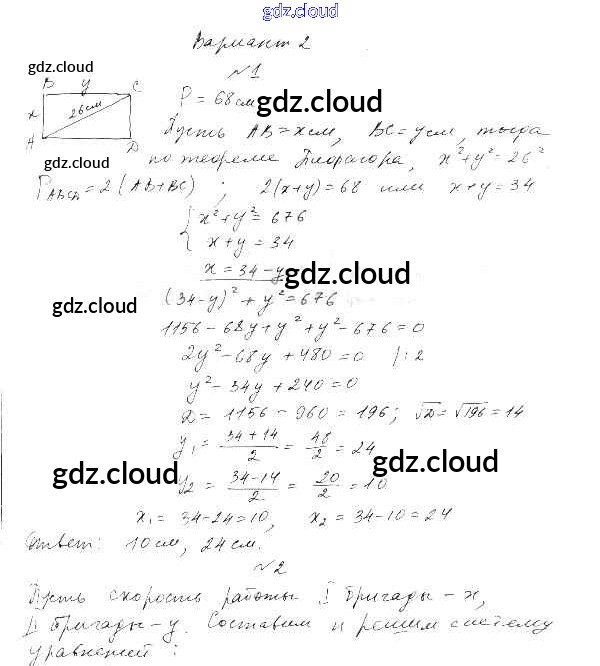 gdz.cloud
Вариант 2
gdz.cloud
№1
B y C
P = 68 см
gdz.cloud
x 26 см
A D
Пусть AB = x см, BC = y см, тогда
gdz.cloud
по теореме Пифагора, x² + y² = 26².
P_ABCD = 2(AB + BC) ; 2(x+y) = 68 или x+y = 34
{ x² + y² = 676
x + y = 34
x = 34 - y
gdz.cloud
(34-y)² + y² = 676
gdz.cloud
1156 - 68y + y² + y² - 676 = 0
2y² - 68y + 480 = 0 /:2
y² - 34y + 240 = 0
D = 1156 - 960 = 196; √D = √196 = 14
y₁ = (34+14)/2 = 48/2 = 24
gdz.cloud
gdz.cloud
y₂ = (34-14)/2 = 20/2 = 10
x₁ = 34-24 = 10, x₂ = 34-10 = 24
Ответ: 10 см, 24 см.
№2
Пусть скорость работы I бригады - x,
II бригады - y. Составим и решим систему
уравнений: